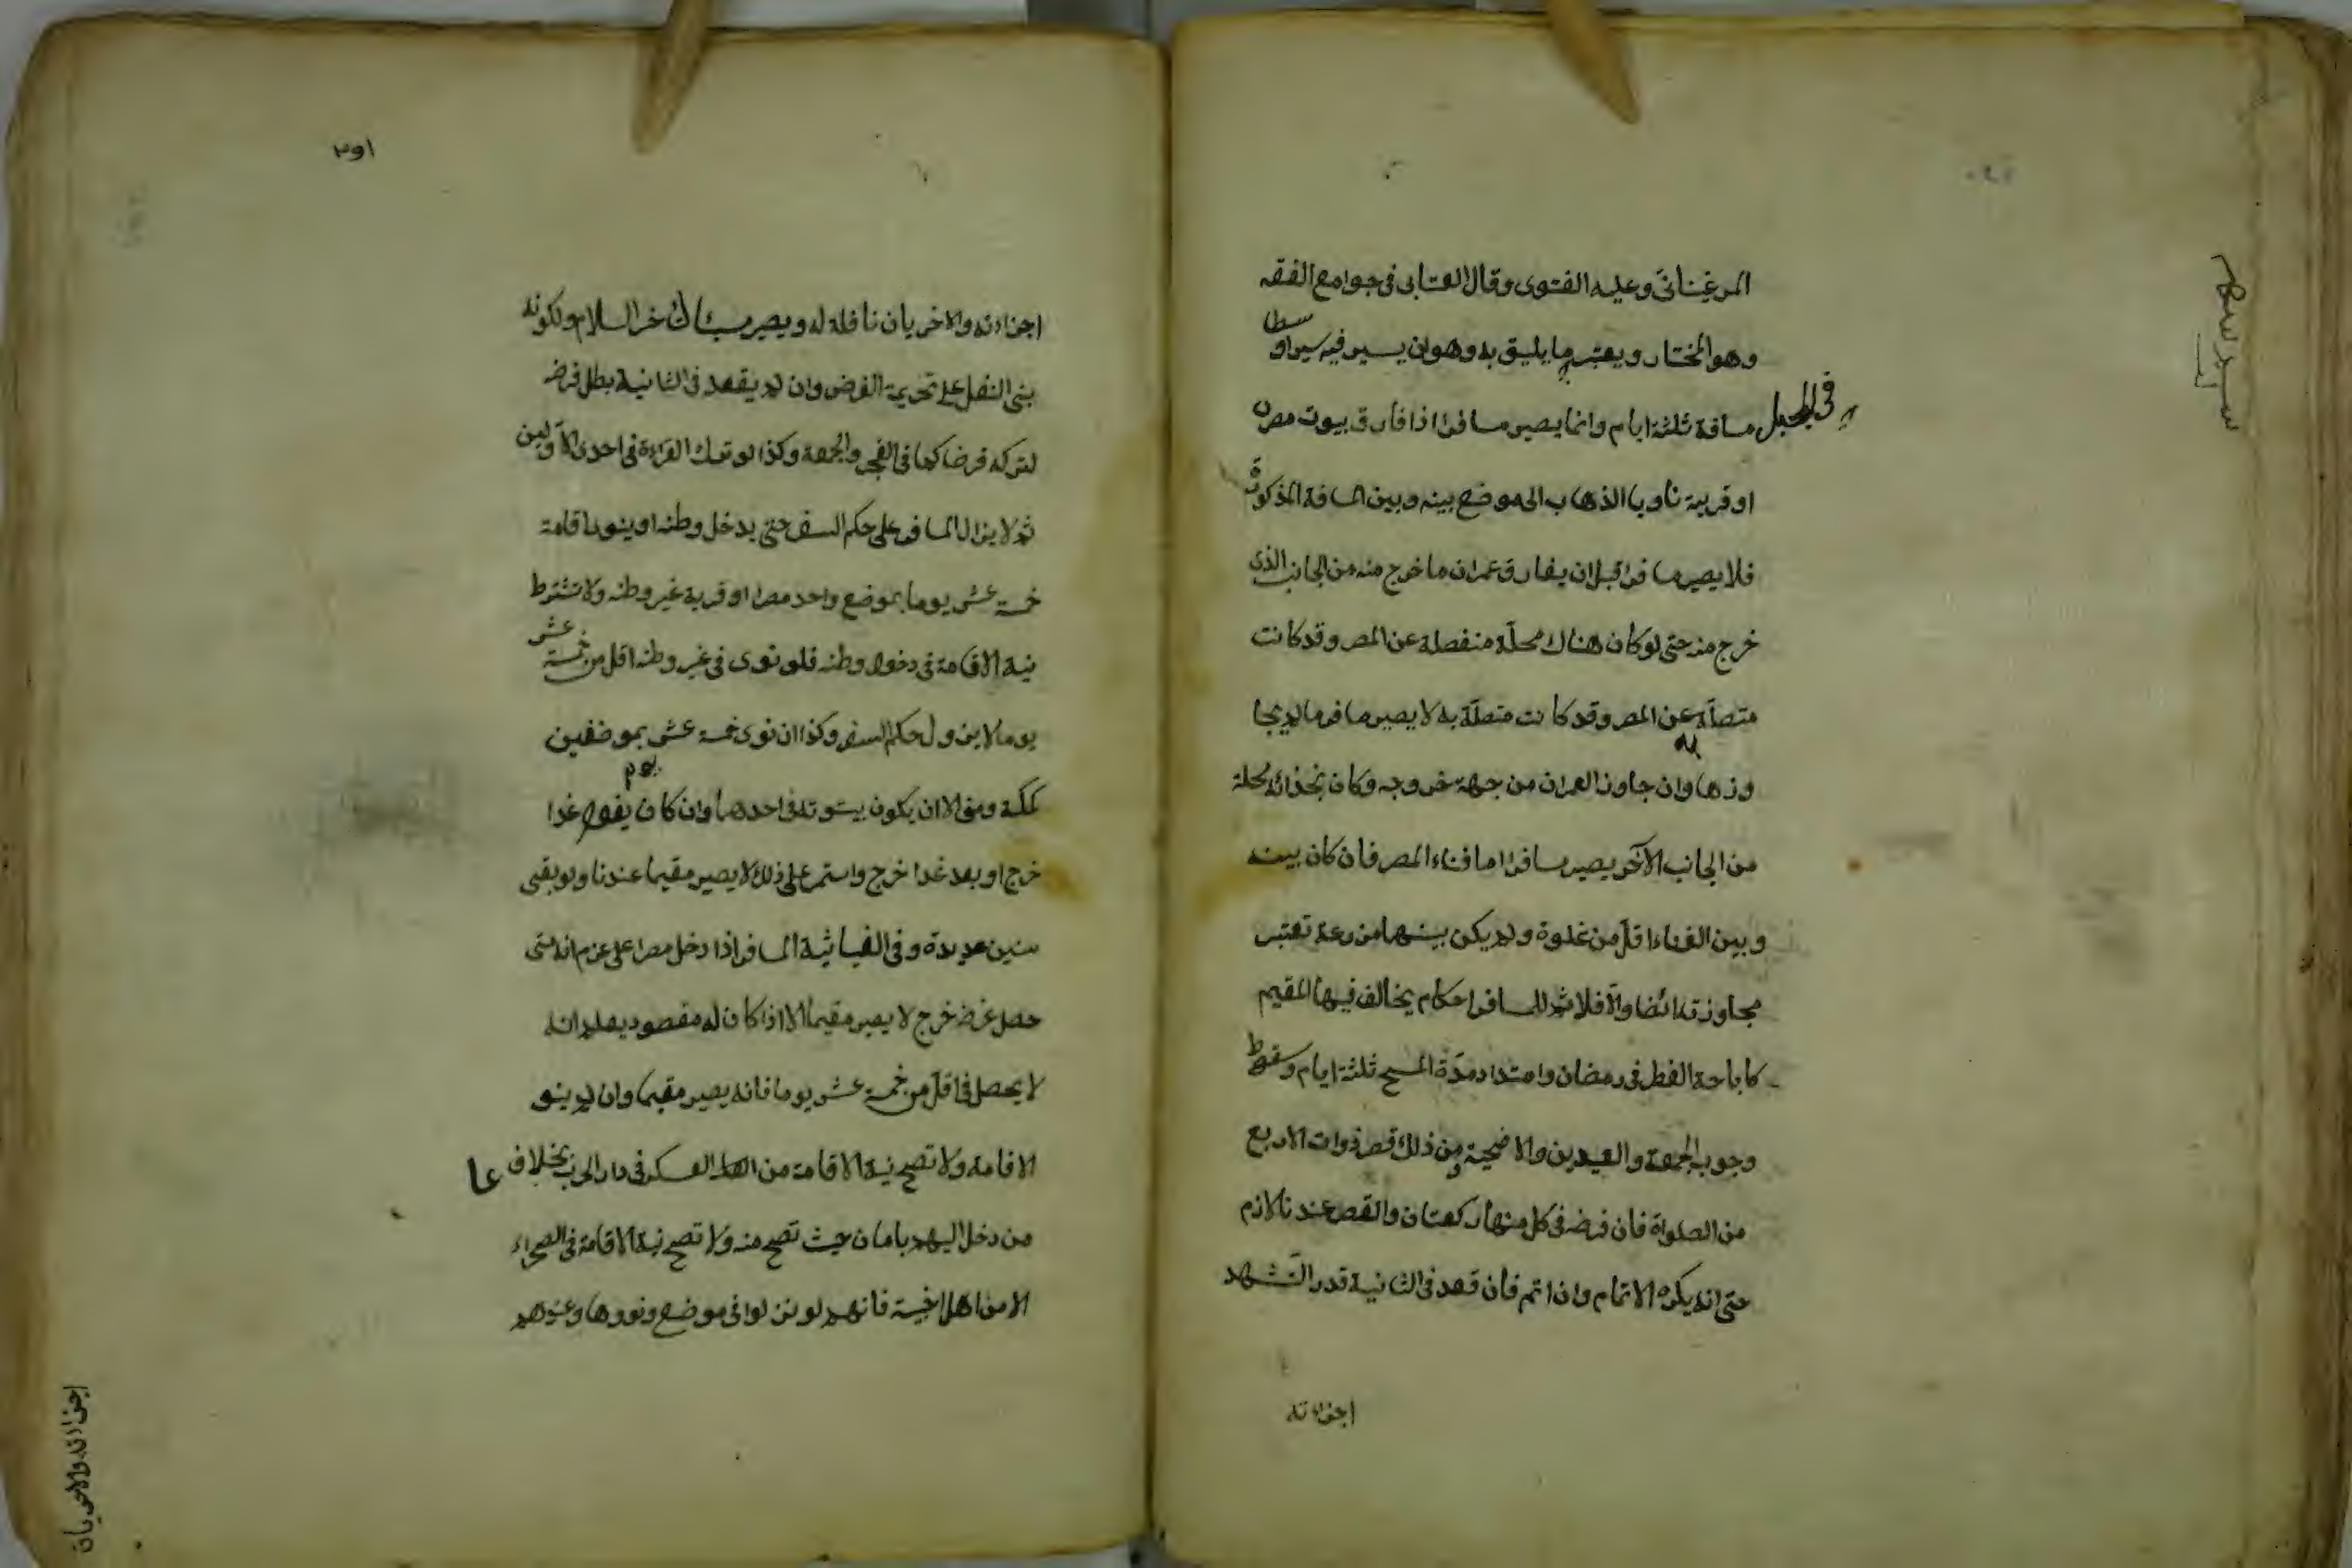 المرغيناني وعليه الفتوى وقال العتابي في جوامع الفقه
وهو المختار ويعتبر ما يليق به وهو ان يسير فيه سيرا وسطا
في الجبل مسافة ثلثة ايام وانما يصير مسافرا اذا فارق بيوت مصره
او قرية ناويا الذهاب الى موضع بينه وبين المسافة المذكورة
فلا يصير مسافرا قبل ان يفارق عمران ما خرج منه من الجانب الذى
خرج منه حتى لو كان هناك محلة منفصلة عن المصر وقد كانت
متصلة عن المصر وقد كانت متصلة به لا يصير مسافرا ما لم يجا
وزها وان جاوز العمران من جهة خروجه وكان بحذائه محلة
من الجانب الآخر يصير مسافرا اما فناء المصر فان كان بينه
وبين الفناء اقل من غلوة ولم يكن بينهما مزرعة تعتبر
مجاوزته ايضا والا فلا ثم للمسافر احكام يخالف فيها المقيم
كاباحة الفطر في رمضان وامتداد مدة المسح ثلثة ايام وسقوط
وجوب الجمعة والعيدين والاضحية ومن ذلك قصر ذوات الاربع
من الصلواة فان فرضه في كل منها ركعتان والقصر عندنا لازم
حتى انه يكره الاتمام وان اتم فان قعد في الثانية قدر التشهد
اجزاءته
٣٥١
اجزاءته والاخريان نافلة له ويصير مسيئا لتاخر السلام ولكونه
بنى النفل على تحريمة الفرض وان لم يقعد في الثانية بطل فرضه
لتركه فرضا كما في الفجر والجمعة وكذا لو ترك القراءة في احدى الاوليين
ثم لا يزال المسافر على حكم السفر حتى يدخل وطنه او ينوي اقامة
خمسة عشر يوما بموضع واحد مصرا او قرية غير وطنه ولا تشترط
نية الاقامة في دخول وطنه فلو نوى في غير وطنه اقل من خمسة عشر
يوما لا يزول حكم السفر وكذا ان نوى خمسة عشر بموضعين
كمكة ومنى الا ان يكون بيتوته في احدهما وان كان يقول غدا
خرج او بعد غدا خرج واستمر على ذلك لا يصير مقيما عندنا ولو بقى
سنين عديدة وفي الغياثية المسافر اذا دخل مصرا على عزم انه متى
حصل غرضه خرج لا يصير مقيما الا اذا كان له مقصود يعلم انه
لا يحصل في اقل من خمسة عشر يوما فانه يصير مقيما وان لم ينو
الاقامة ولا تصح نية الاقامة من العسكر في دار الحرب بخلاف
من دخل اليهم بامان حيث تصح منه ولا تصح نية الاقامة في الصحراء
الا من اهل اخبية فانهم لو نزلوا في موضع ونووها وعزمهم
اجزاءته والاخريان